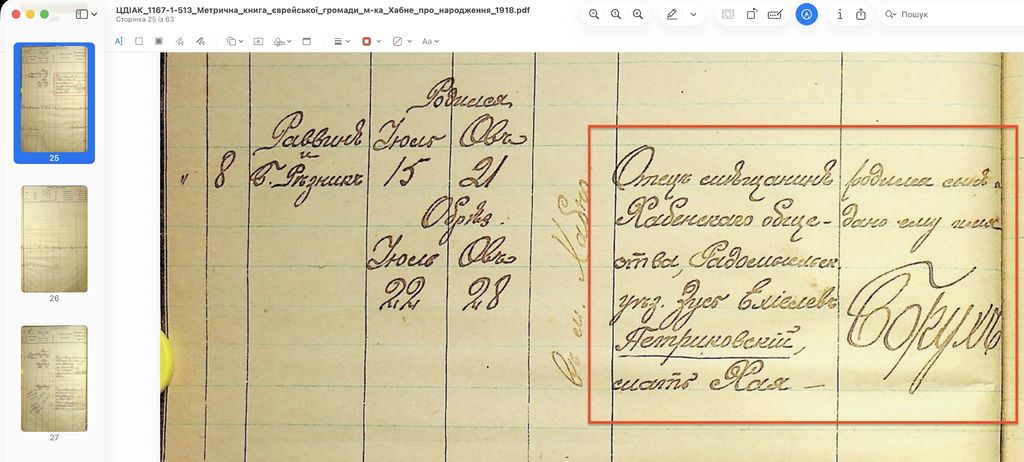 ЦДІАК_1167-1-513_Метрична_книга_єврейської_громади_м-ка_Хабне_про_народження_1918.pdf
Сторінка 25 із 63
Пошук
Aa
25
26
27
Родился
Раввинъ Іюль Овъ
и
" 8 Б. Рѣзникъ 15 21
Обрѣз.
Іюль Овъ
22 28
въ м. Хабно
Отецъ мѣщанинъ
Хабенскаго обще-
ства, Радомысльск.
уѣз. Зусь Еліелевъ
Петриковскій,
мать Хая —
родился сынъ,
дано ему имя
Борухъ